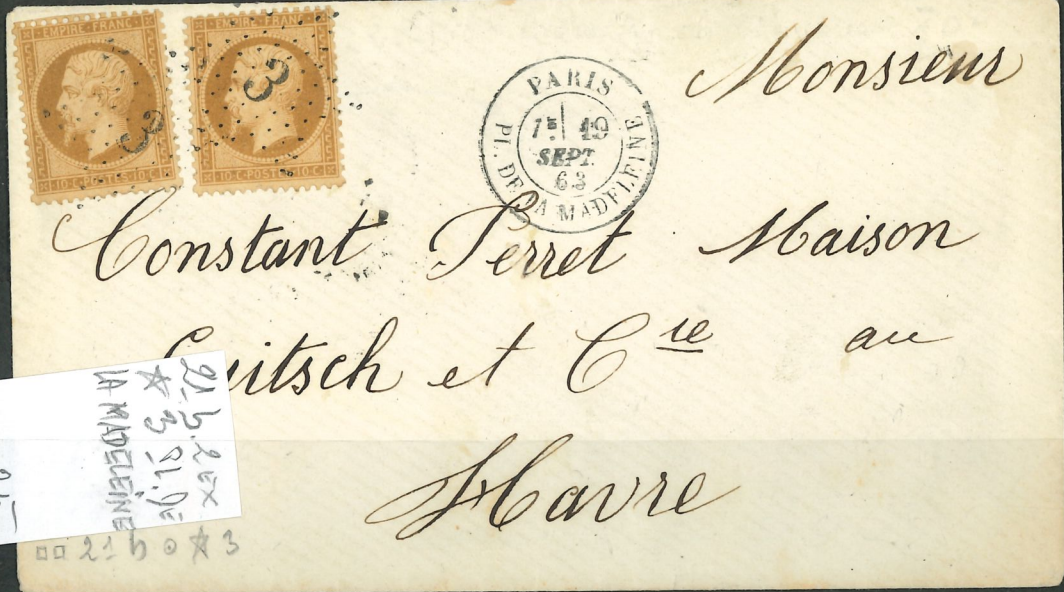 EMPIRE FRANC
10 C POSTES 10 C
3
EMPIRE FRANC
10 C POSTES 10 C
3
PARIS
1E 19
SEPT.
63
PL. DE LA MADELEINE
Monsieur
Constant Perret Maison
et Cie au
Havre
21 b. 2 ex
☆ 3 PL. DE
LA MADELEINE
□□ 21 b ⊙ ☆ 3